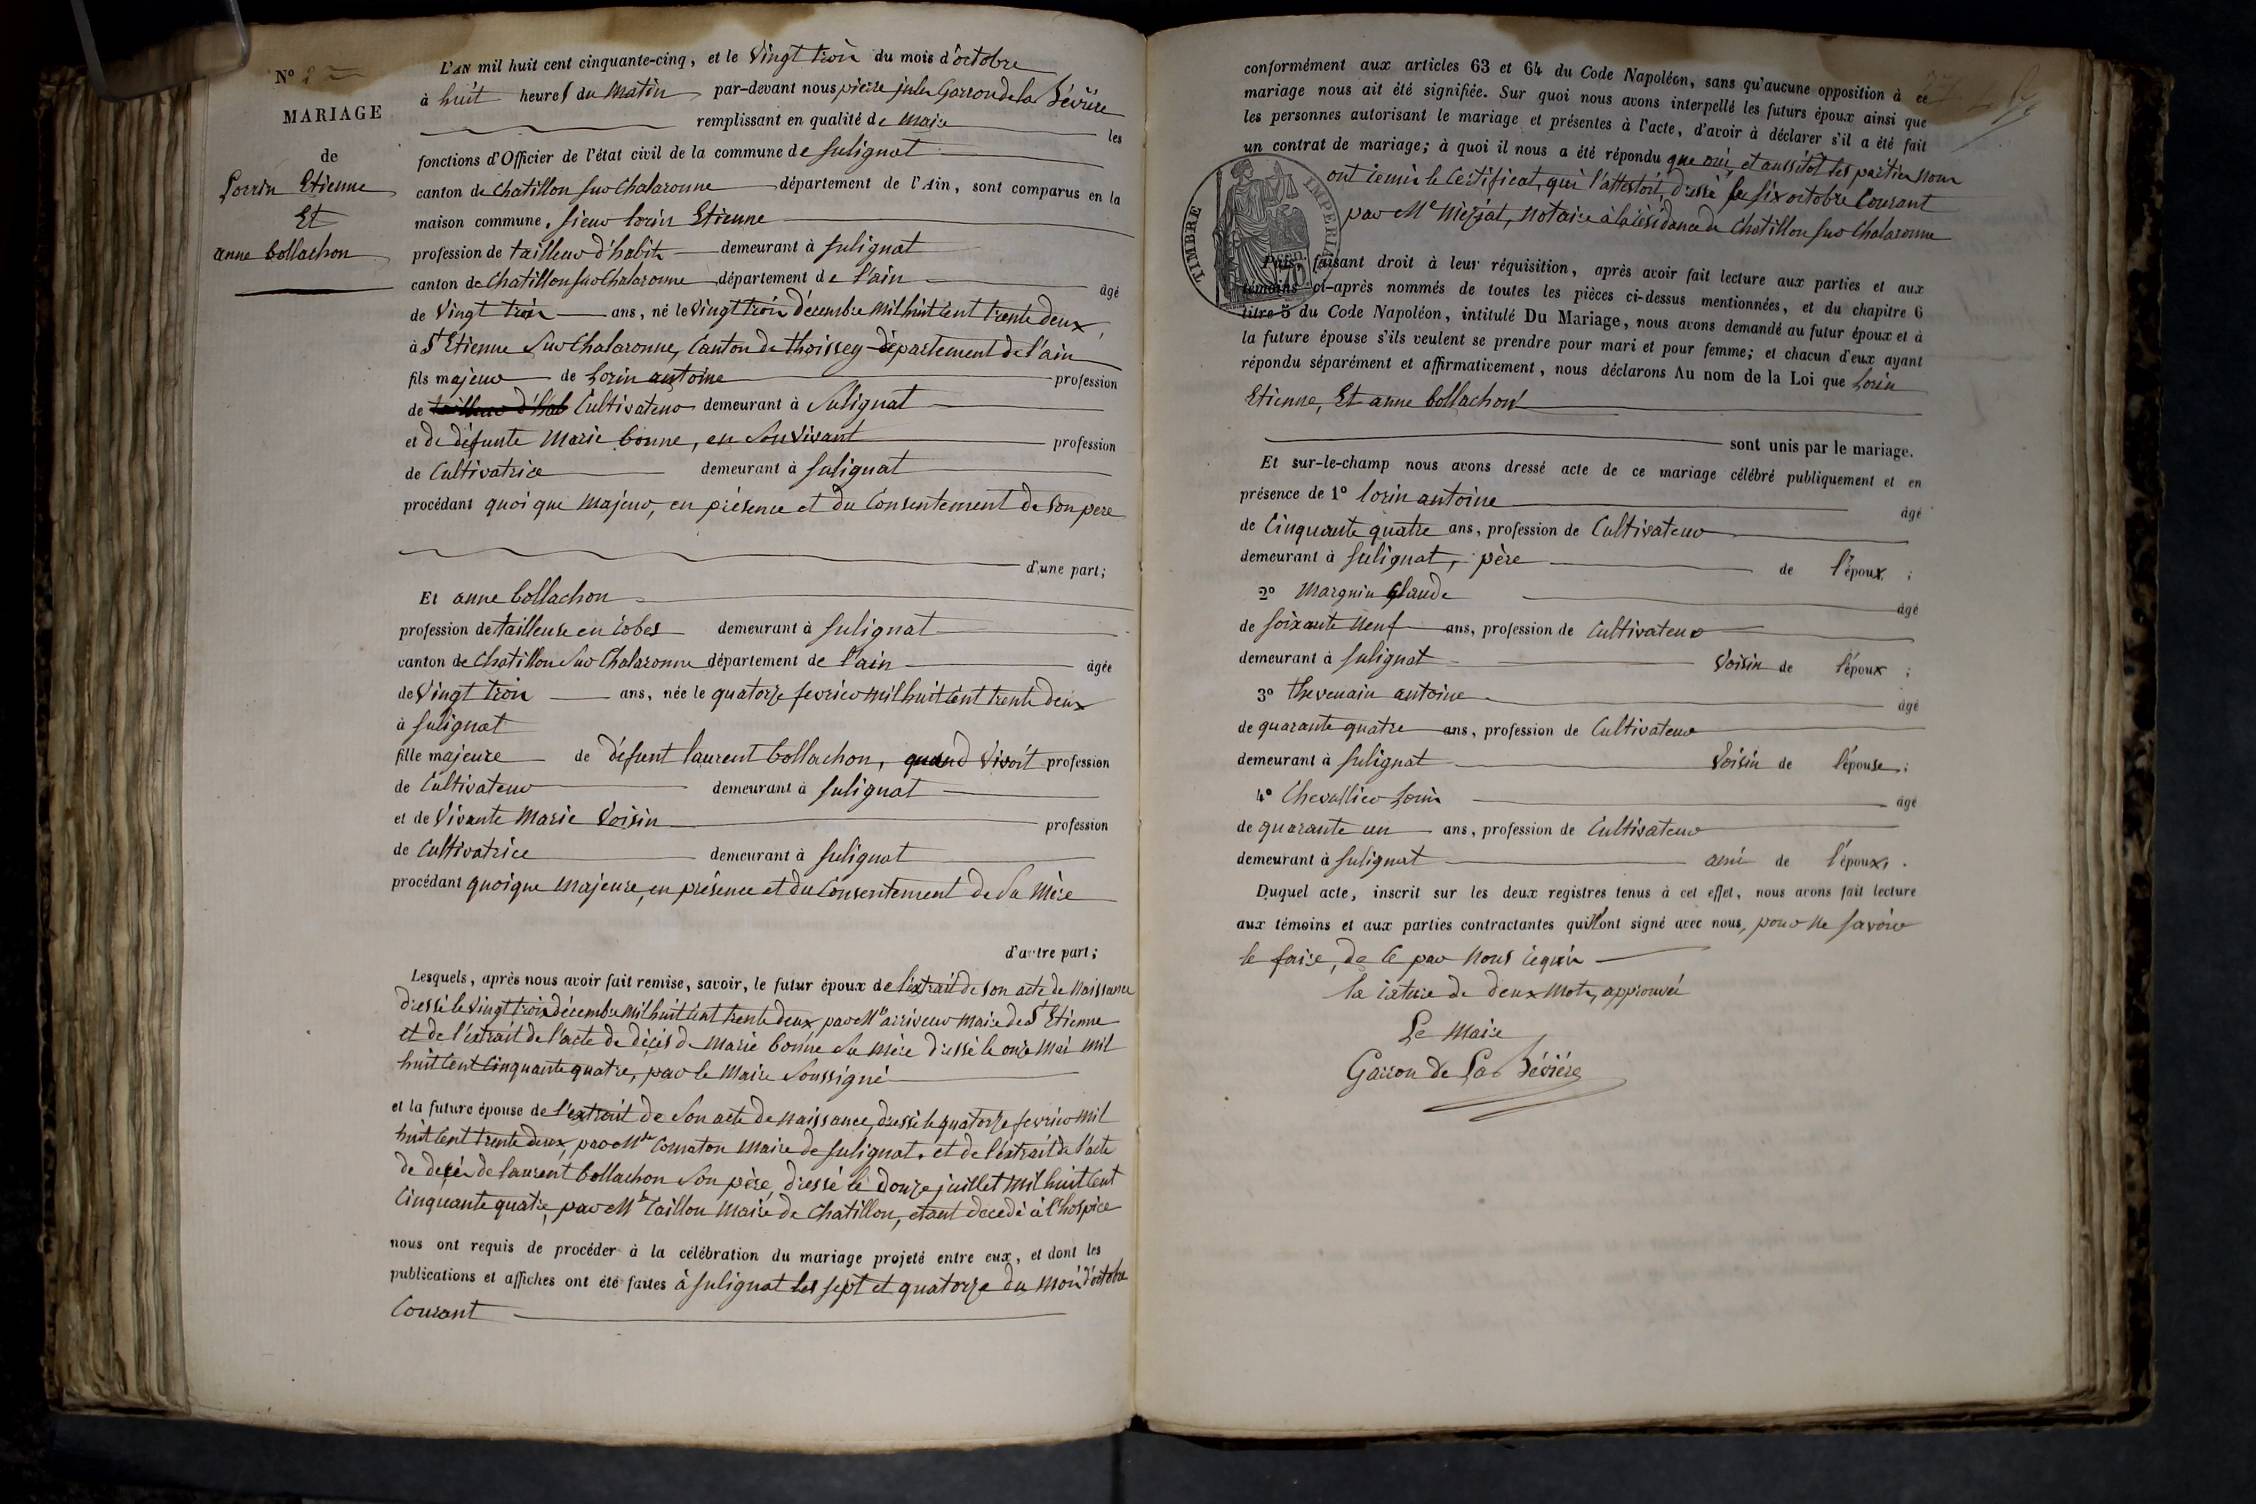 N° 2
MARIAGE
de
Lorrin Etienne
Et
anne bollachon
L'AN mil huit cent cinquante-cinq, et le Vingt trois du mois d'octobre
à huit heures du Matin par-devant nous pierre jules Garron de la Bévière
remplissant en qualité de Maire les
fonctions d'Officier de l'état civil de la commune de Sulignat
canton de Chatillon sur Chalaronne département de l'Ain, sont comparus en la
maison commune, sieur lorin Etienne
profession de tailleur d'habits demeurant à Sulignat
canton de Chatillon sur Chalaronne département de l'ain âgé
de Vingt trois ans, né le Vingt trois décembre Mil huit Cent trente deux
à St Etienne sur Chalaronne, Canton de thoissey département de l'ain
fils majeur de Lorin antoine profession
de tailleur d'hab Cultivateur demeurant à Sulignat
et de défunte Marie bonne, en son Vivant profession
de Cultivatrice demeurant à Sulignat
procédant quoi que Majeur, en présence et du Consentement de son père
d'une part;
Et anne bollachon
profession de tailleuse en robes demeurant à Sulignat
canton de Chatillon sur Chalaronne département de l'ain âgée
de Vingt trois ans, née le quatorze fevrier Mil huit Cent trente deux
à Sulignat
fille majeure de défunt laurent bollachon, quand Vivoit profession
de Cultivateur demeurant à Sulignat
et de Vivante Marie Voisin profession
de Cultivatrice demeurant à Sulignat
procédant quoique Majeure, en présence et du Consentement de Sa Mère
d'autre part;
Lesquels, après nous avoir fait remise, savoir, le futur époux de l'extrait de son acte de Naissance
dressé le Vingt trois décembre Mil huit Cent trente deux, par Mr arriveur Maire de St Etienne
et de l'extrait de l'acte de décès de Marie bonne Sa Mère dressé le onze Mai Mil
huit Cent Cinquante quatre, par le Maire Soussigné
et la future épouse de l'extrait de Son acte de Naissance, dressé le quatorze fevrier Mil
huit Cent trente deux, par Mr Comaton Maire de Sulignat. et de l'extrait de l'acte
de décès de laurent bollachon Son père, dressé le douze juillet Mil huit Cent
Cinquante quatre, par Mr Caillon Maire de Chatillon, etant decedé à l'hospice
nous ont requis de procéder à la célébration du mariage projeté entre eux, et dont les
publications et affiches ont été faites à Sulignat les sept et quatorze du Mois d'octobre
Courant
conformément aux articles 63 et 64 du Code Napoléon, sans qu'aucune opposition à ce
mariage nous ait été signifiée. Sur quoi nous avons interpellé les futurs époux ainsi que
les personnes autorisant le mariage et présentes à l'acte, d'avoir à déclarer s'il a été fait
un contrat de mariage; à quoi il nous a été répondu que oui, et aussitot les parties nous
ont remis le Certificat, qui l'attestoit, dressé le six octobre Courant
par Me Mezjat, Notaire à la résidance de Chatillon sur Chalaronne
TIMBRE IMPERIAL
75 cen.
Puis, faisant droit à leur réquisition, après avoir fait lecture aux parties et aux
témoins ci-après nommés de toutes les pièces ci-dessus mentionnées, et du chapitre 6
titre 5 du Code Napoléon, intitulé Du Mariage, nous avons demandé au futur époux et à
la future épouse s'ils veulent se prendre pour mari et pour femme; et chacun d'eux ayant
répondu séparément et affirmativement, nous déclarons Au nom de la Loi que Lorin
Etienne, Et anne bollachon
sont unis par le mariage.
Et sur-le-champ nous avons dressé acte de ce mariage célébré publiquement et en
présence de 1° lorin antoine âgé
de Cinquante quatre ans, profession de Cultivateur
demeurant à Sulignat, père de l'époux ;
2° Marguin Claude âgé
de Soixante Neuf ans, profession de Cultivateur
demeurant à Sulignat Voisin de l'époux ;
3° thevenain antoine âgé
de quarante quatre ans, profession de Cultivateur
demeurant à Sulignat Voisin de l'épouse ;
4° Chevallier Lorin âgé
de quarante un ans, profession de Cultivateur
demeurant à Sulignat ami de l'époux .
Duquel acte, inscrit sur les deux registres tenus à cet effet, nous avons fait lecture
aux témoins et aux parties contractantes qui n'ont signé avec nous, pour Ne Savoir
le faire, de Ce par Nous requis
la rature de deux Mots, approuvée
Le Maire
Garron de La Bévière